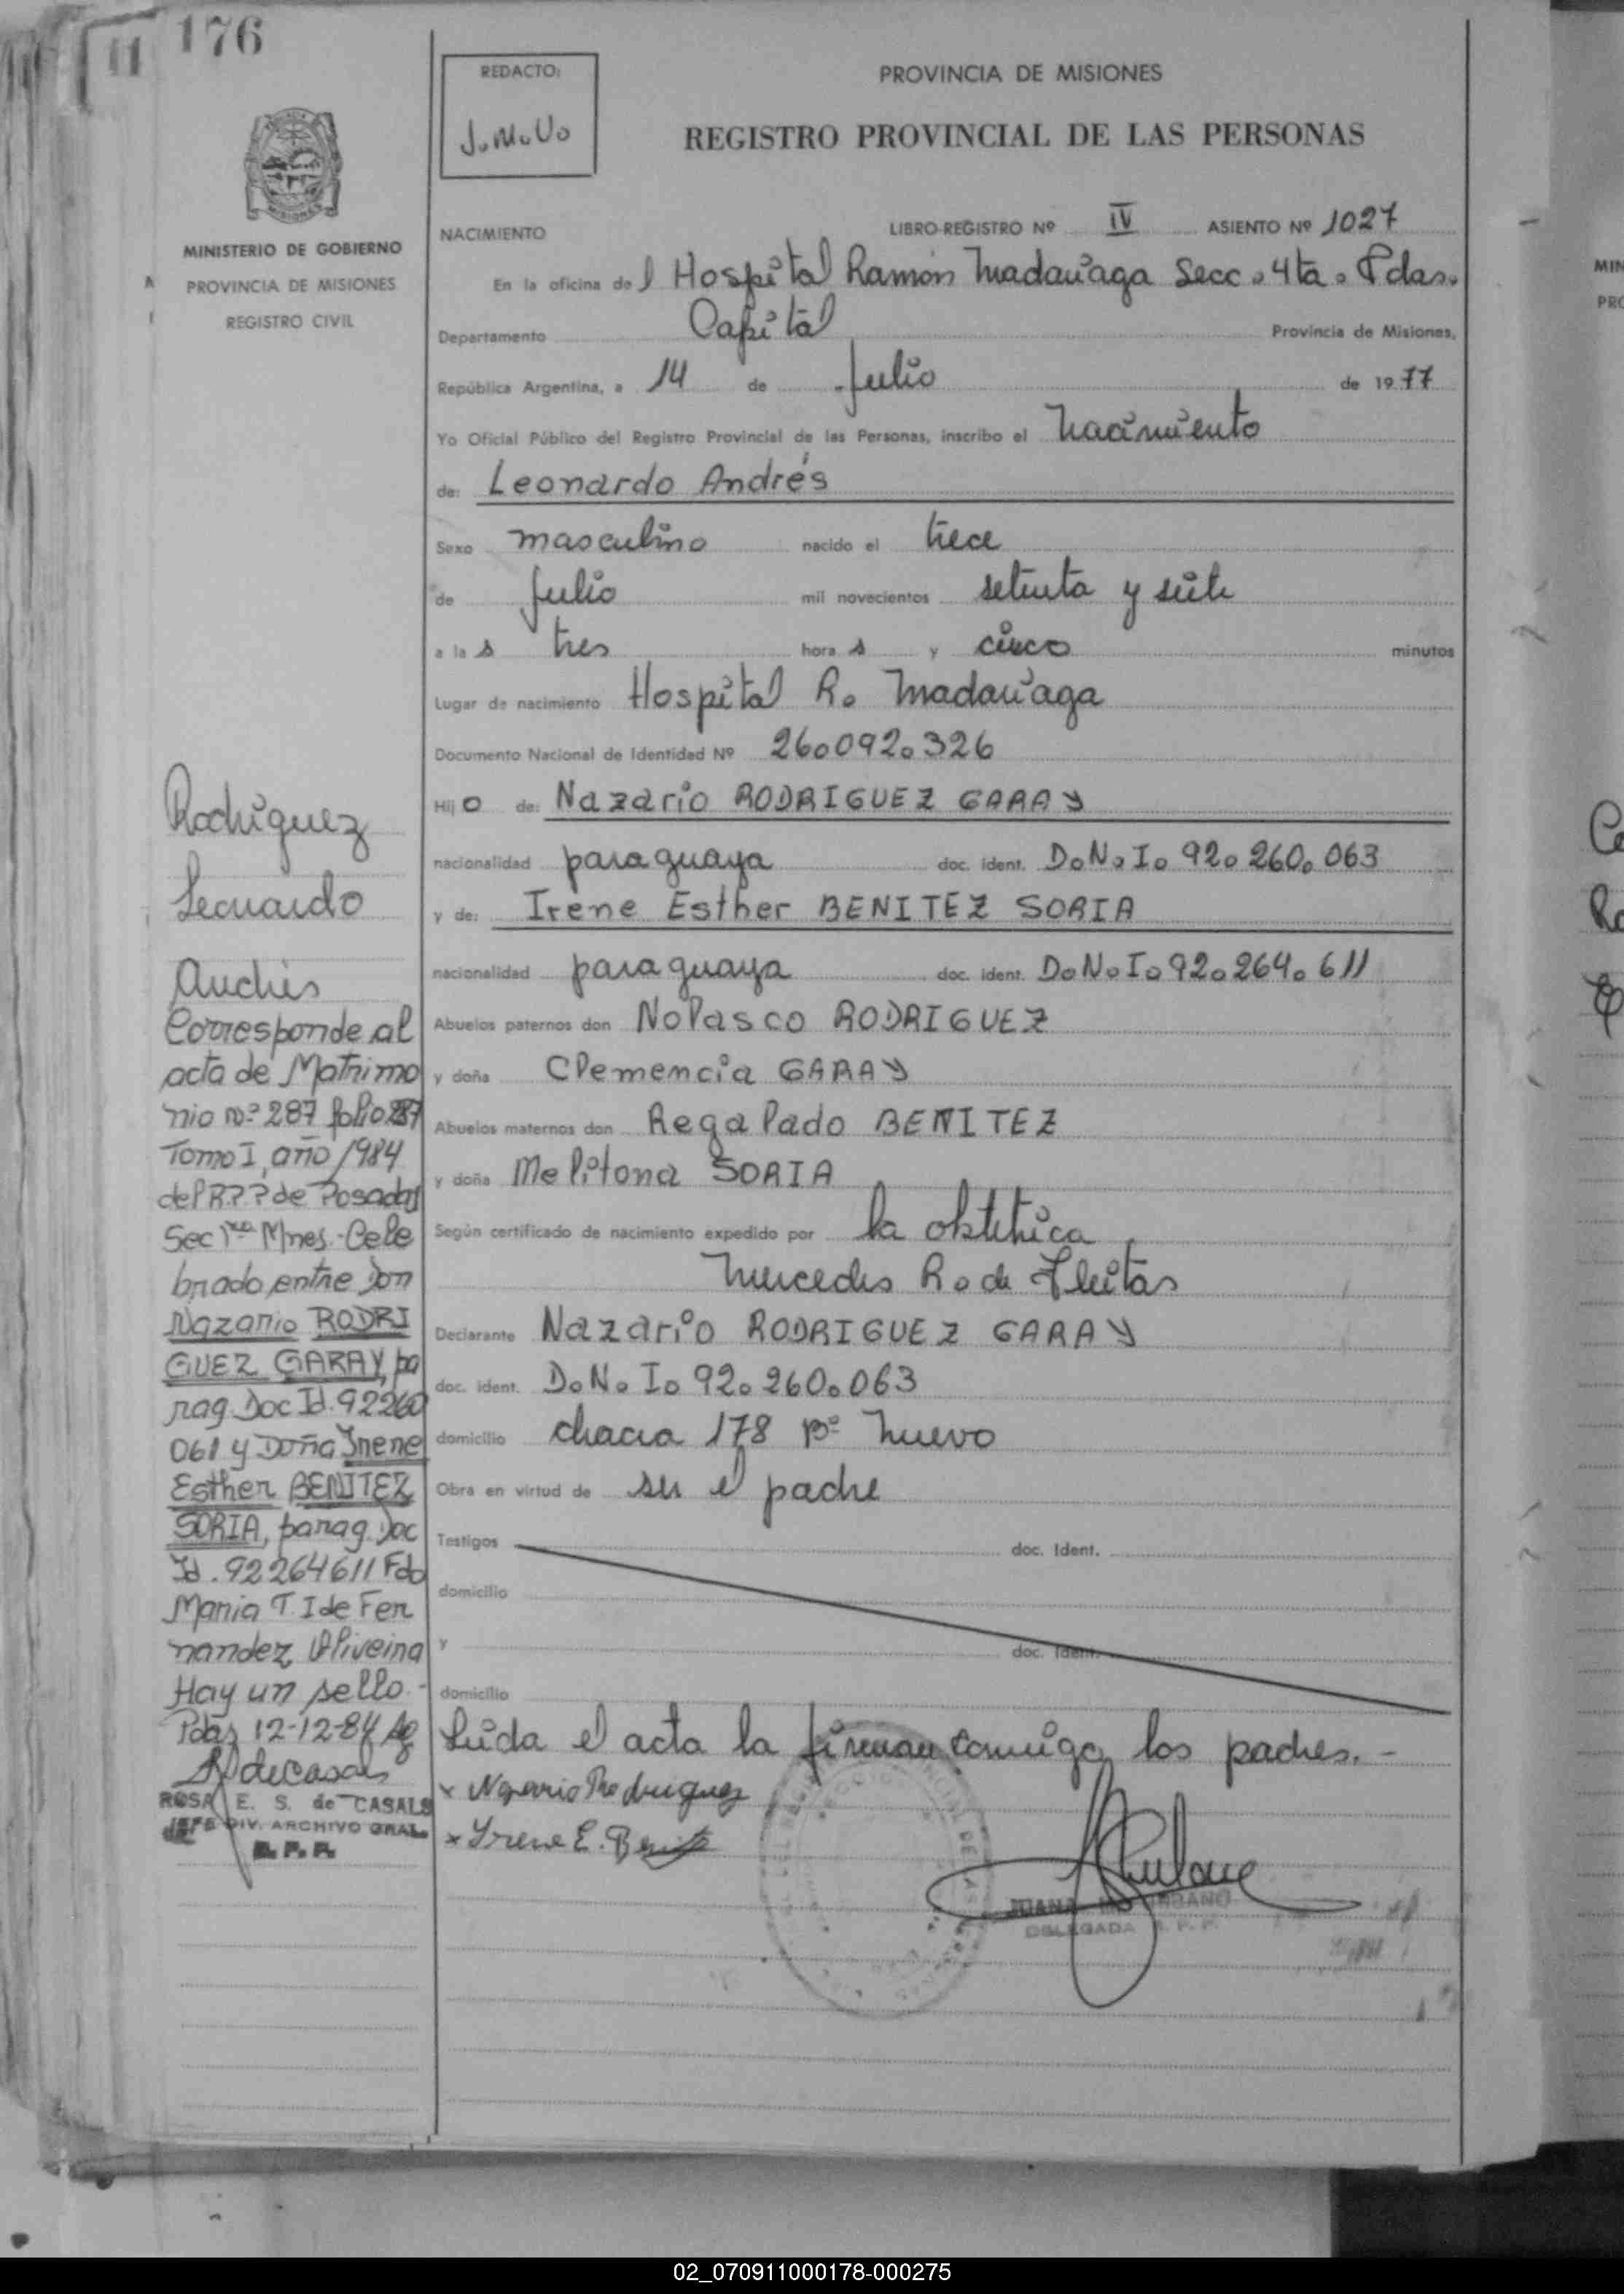 176
REDACTO:
J.M.U.
PROVINCIA DE MISIONES
REGISTRO PROVINCIAL DE LAS PERSONAS
MINISTERIO DE GOBIERNO
PROVINCIA DE MISIONES
REGISTRO CIVIL
NACIMIENTO LIBRO-REGISTRO Nº IV ASIENTO Nº 1027
En la oficina del Hospital Ramón Madariaga Secc. 4ta. Pdas.
Departamento Capital Provincia de Misiones,
República Argentina, a 14 de Julio de 1977
Yo Oficial Público del Registro Provincial de las Personas, inscribo el Nacimiento
de: Leonardo Andrés
Sexo masculino nacido el trece
de Julio mil novecientos setenta y siete
a las tres horas y cinco minutos
Lugar de nacimiento Hospital R. Madariaga
Documento Nacional de Identidad Nº 26.092.326
Hijo de: Nazario RODRIGUEZ GARAY
nacionalidad paraguaya doc. ident. D.N.I. 92.260.063
y de: Irene Esther BENITEZ SORIA
nacionalidad paraguaya doc. ident. D.N.I. 92.264.611
Abuelos paternos don Nolasco RODRIGUEZ
y doña Clemencia GARAY
Abuelos maternos don Regalado BENITEZ
y doña Melitona SORIA
Según certificado de nacimiento expedido por la obstétrica
Mercedes R. de Fleitas
Declarante Nazario RODRIGUEZ GARAY
doc. ident. D.N.I. 92.260.063
domicilio chacra 178 Bº Nuevo
Obra en virtud de ser el padre
Testigos doc. Ident.
domicilio
y doc. Ident.
domicilio
Leída el acta la firman conmigo los padres.-
x Nazario Rodriguez
x Irene E. Benitez
JUANA M. URBANO
DELEGADA R. P. P.
Rodríguez
Leonardo
Andrés
Corresponde al
acta de Matrimo
nio nº 287 folio 287
Tomo I, año 1984
del R.P.P de Posadas
Sec 1ra Mnes.-Cele
brado entre Don
Nazario RODRI
GUEZ GARAY, pa
rag. Doc Id. 92260
061 y Doña Irene
Esther BENITEZ
SORIA, parag. Doc
Id. 92264611 Fdo
Maria T. I de Fer
nandez Oliveira
Hay un sello.-
Pdas 12-12-84
ROSA E. S. de CASALS
JEFE DIV. ARCHIVO GRAL.
R. P. P.
02_070911000178-000275